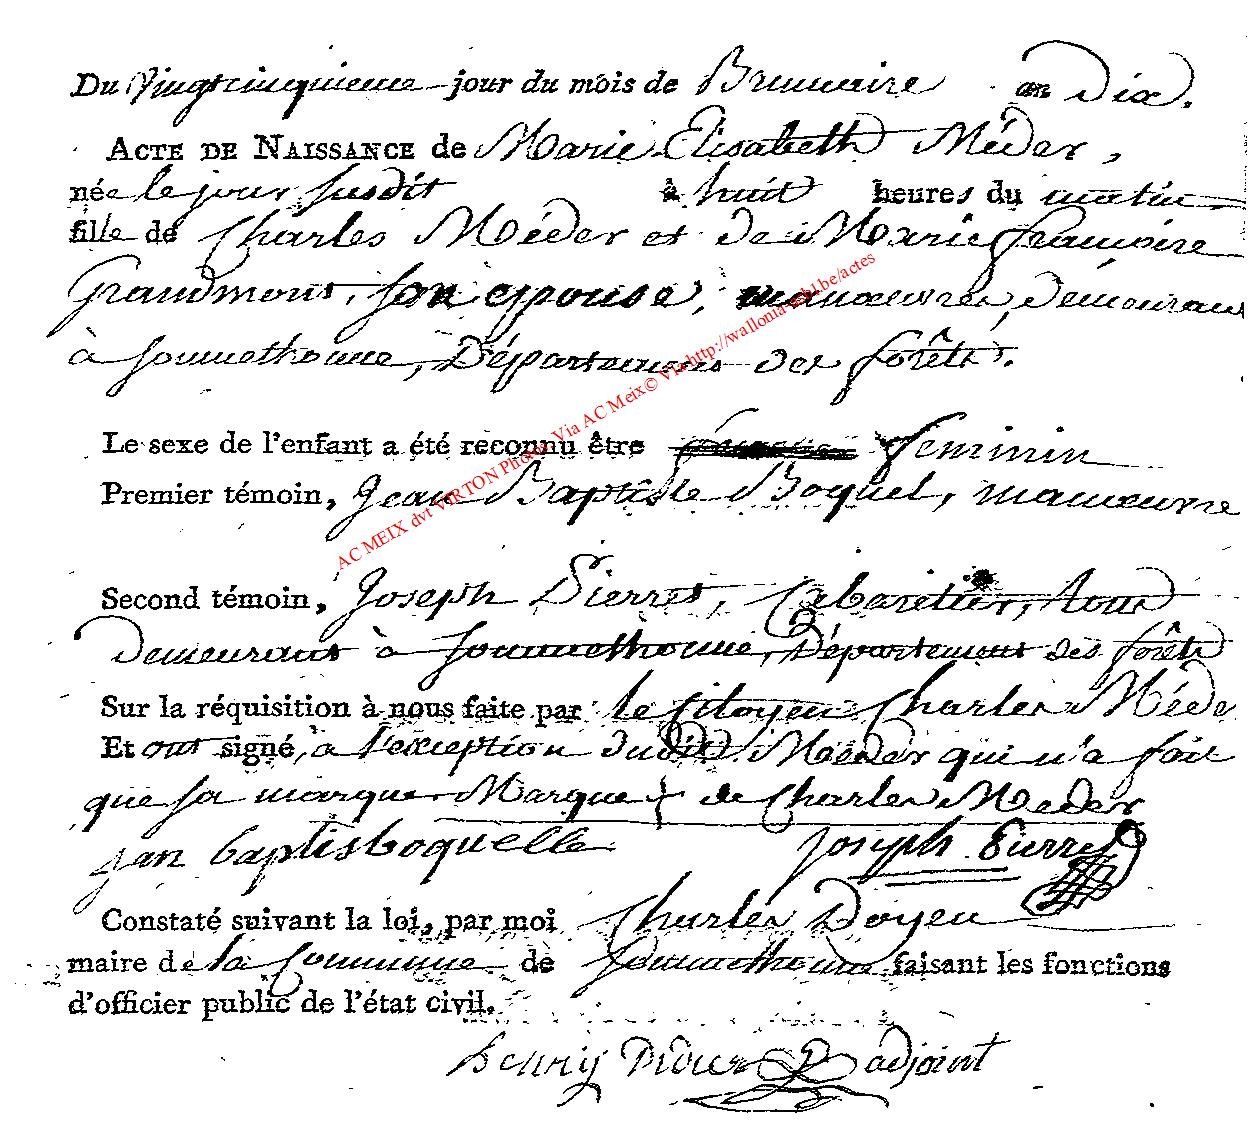 Du Vingtcinquieme jour du mois de Brumaire an Dix.
ACTE DE NAISSANCE de Marie Elisabeth Méder,
née le jour susdit à huit heures du matin
fille de Charles Méder et de Marie françoise
Grandmont, son epouse, manœuvres, démeurans
à Sommethonne, Département des forêts.
Le sexe de l'enfant a été reconnu être feminin
Premier témoin, Jean Baptiste Boquel, manœuvre
Second témoin, Joseph Pierret, Cabaretier, tous
Demeurant à Sommethonne, Département des forêts
Sur la réquisition à nous faite par le Citoyen Charles Méde
Et ont signé, à l'exception dudit Méder qui n'a fait
que sa marque. Marque + de Charles Meder
jan baptisboquelle Joseph Pierret
Constaté suivant la loi, par moi Charles Doyen
maire de la Commune de Sommethonne faisant les fonctions
d'officier public de l'état civil.
henry adjoint
AC MEIX dvt VIRTON Photos Via AC Meix© Via http://wallonia-asbl.be/actes